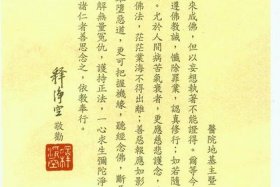 來成佛，但以妄想執著不能證得。爾等今
遵佛教誡，懺除罪業，認真修行；如若隨
，尤於人間病苦氣衰者，更應慈悲護念，
佛法，茫茫業海不得出離；善惡報應如影
離墮惡道，更可把握機緣，聽經念佛，斷
解無量冤仇，護持正法，一心求生彌陀淨
諸仁者善思念之，依教奉行。
釋淨空 敬勸
醫院地基主暨